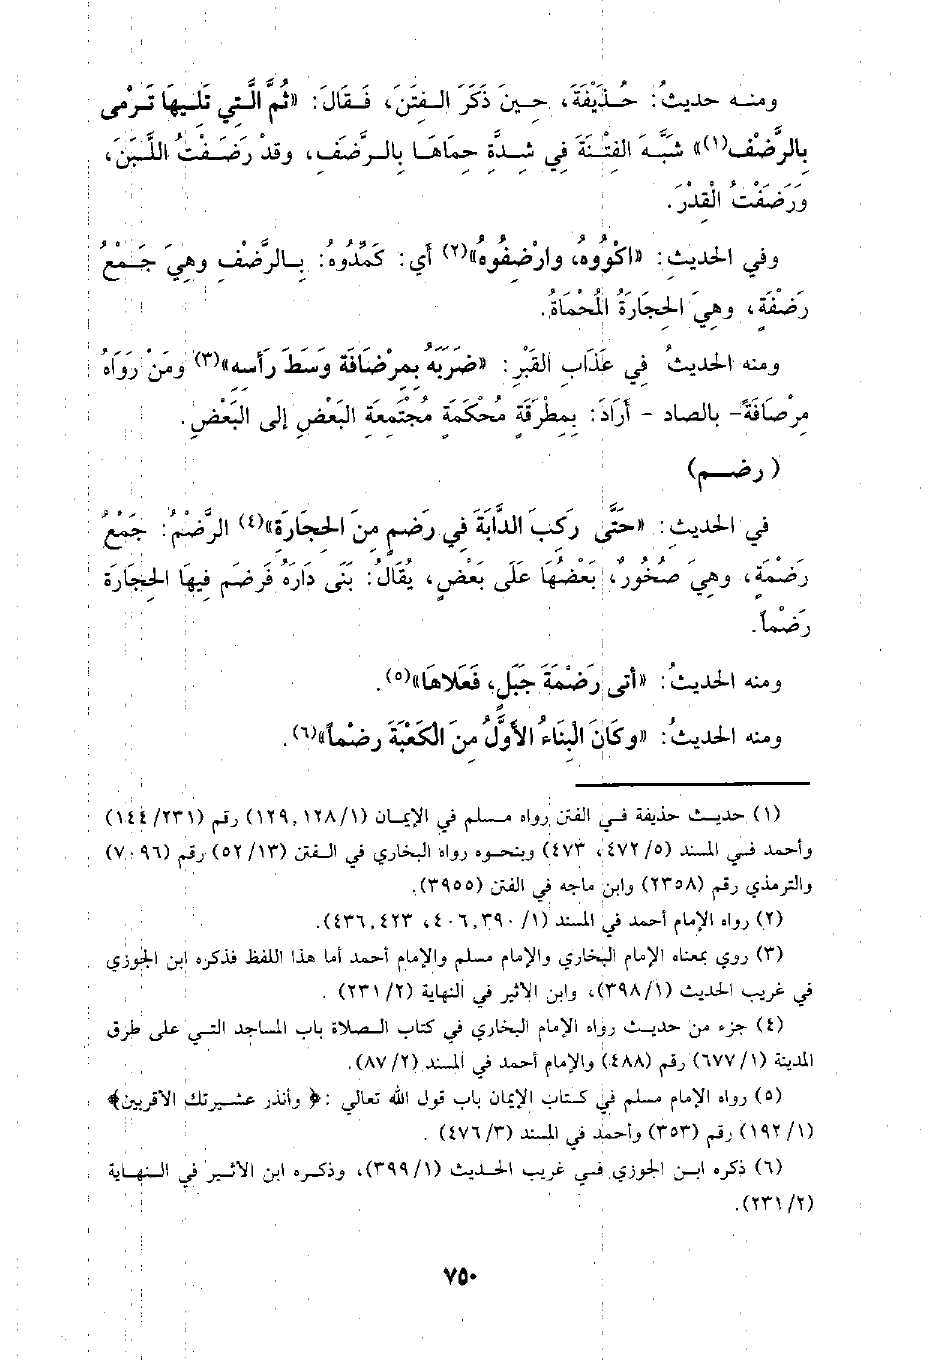 ومنه حديثُ: حُذَيْفَةَ، حِينَ ذَكَرَ الفِتَنَ، فَقَالَ: «ثُمَّ الَّتِي تَلِيهَا تَرْمِى
بِالرَّضْفِ(١)» شَبَّهَ الفِتْنَةَ فِي شِدَّةِ حِمَاهَا بِالرَّضَفِ، وقدْ رَضَفْتُ اللَّبَنَ،
وَرَضَفْتُ الْقِدْرَ.
وفي الحديثِ: «اكْوُوهُ، وارْضِفُوهُ»(٢) أَي: كَمِّدُوهُ: بِالرَّضْفِ وهِيَ جَمْعُ
رَضْفَةٍ، وهِيَ الحِجَارَةُ المُحْمَاةُ.
ومنه الحديثُ فِي عَذَابِ القَبْرِ: «ضَرَبَهُ بِمِرْضَافَة وَسَطَ رَأسِهِ»(٣) ومَنْ رَوَاهُ
مِرْصَافَةً- بالصاد - أَرَادَ: بِمِطْرَقَةٍ مُحْكَمَةٍ مُجْتَمِعَةِ البَعْضِ إلى البَعْضِ.
(رضم)
في الحديثِ: «حَتَّى رَكِبَ الدَّابَةَ فِي رَضمٍ مِنَ الحِجَارَةِ»(٤) الرَّضْمُ: جَمْعُ
رَضْمَةٍ، وهِيَ صُخُورٌ، بَعْضُهَا عَلَى بَعْضٍ، يُقَالُ: بَنَى دَارَهُ فَرضَم فِيهَا الحِجَارَةَ
رَضْماً.
ومنه الحديثُ: «أتى رَضْمَةَ جَبَلٍ، فَعَلاهَا»(٥).
ومنه الحديثُ: «وكَانَ الْبِنَاءُ الأوَّلُ مِنَ الكَعْبَةِ رضْماً»(٦).
(١) حديث حذيفة في الفتن رواه مسلم في الإيمان (١٢٨/١, ١٢٩) رقم (١٤٤/٢٣١)
وأحمد في المسند (٤٧٢/٥، ٤٧٣) وبنحوه رواه البخاري في الفتن (٥٢/١٣) رقم (٧٠٩٦)
والترمذي رقم (٢٣٥٨) وابن ماجه في الفتن (٣٩٥٥).
(٢) رواه الإمام أحمد في المسند (٣٩٠/١, ٤٠٦، ٤٢٣, ٤٣٦).
(٣) روي بمعناه الإمام البخاري والإمام مسلم والإمام أحمد أما هذا اللفظ فذكره ابن الجوزي
في غريب الحديث (٣٩٨/١)، وابن الأثير في النهاية (٢٣١/٢) .
(٤) جزء من حديث رواه الإمام البخاري في كتاب الصلاة باب المساجد التي على طرق
المدينة (٦٧٧/١) رقم (٤٨٨) والإمام أحمد في المسند (٨٧/٢).
(٥) رواه الإمام مسلم في كتاب الإيمان باب قول الله تعالي :﴿ وأنذر عشيرتك الأقربين﴾
(١٩٢/١) رقم (٣٥٣) وأحمد في المسند (٤٧٦/٣) .
(٦) ذكره ابن الجوزي في غريب الحديث (٣٩٩/١)، وذكره ابن الأثير في النهاية
(٢٣١/٢).
٧٥٠